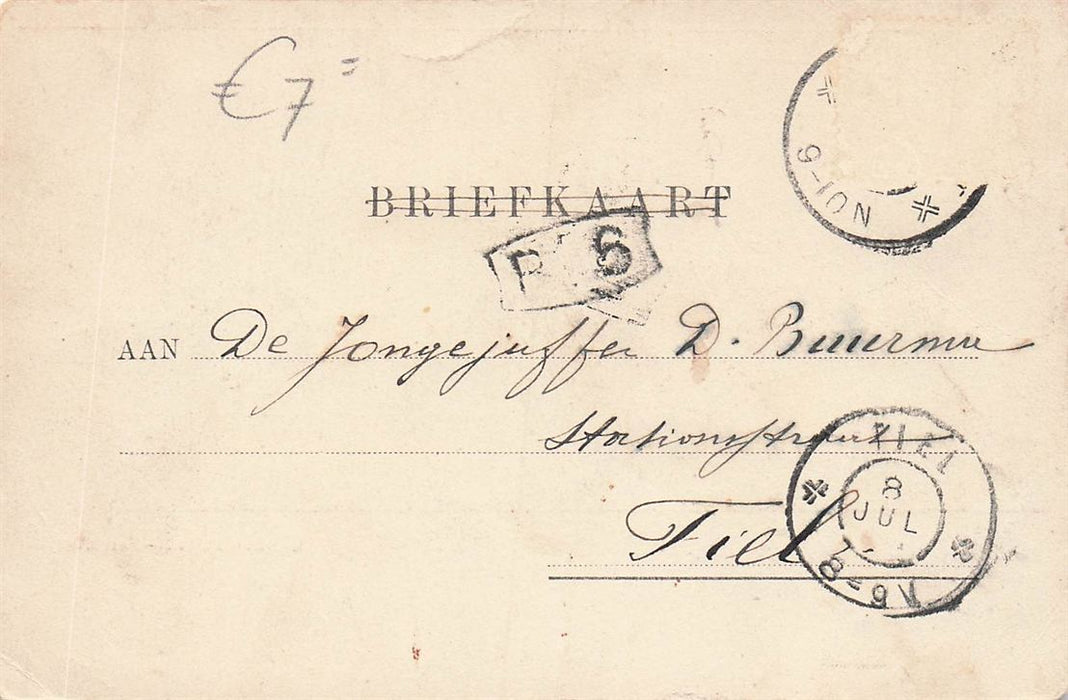 €7=
9-10N
BRIEFKAART
AAN De Jongejuffer D. Buurma
Stationstraat
Tiel
TIEL
8
JUL
8-9V